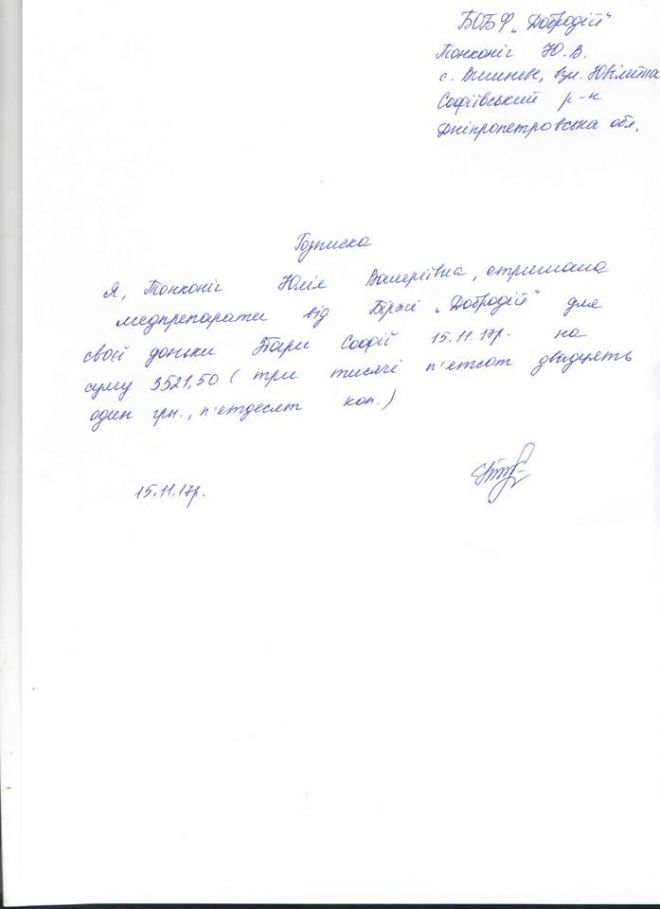 БОБФ „Добродій"
Тонконіг Ю.В.
с. Вишневе, вул. Ювілейна
Софіївський р-н
Дніпропетровська обл.
Розписка
Я, Тонконіг Юлія Валеріївна, отримала
медпрепарати від Біржі „Добродій" для
своєї доньки Софії 15.11.17р. на
суму 3521,50 (три тисячі п'ятсот двадцять
один грн., п'ятдесят коп.)
15.11.17р.